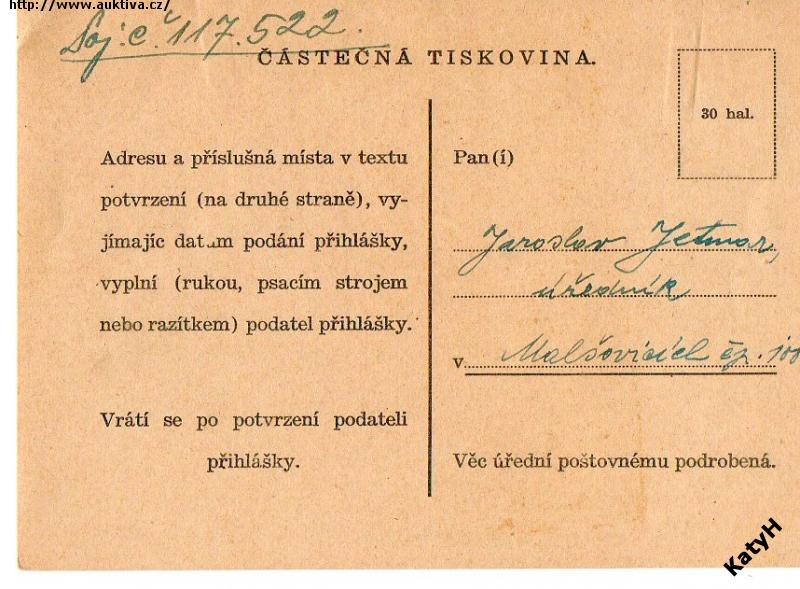 http://www.auktiva.cz/
Poj. č. 117.522.
ČÁSTEČNÁ TISKOVINA.
30 hal.
Adresu a příslušná místa v textu
potvrzení (na druhé straně), vy-
jímajíc datum podání přihlášky,
vyplní (rukou, psacím strojem
nebo razítkem) podatel přihlášky.
Vrátí se po potvrzení podateli
přihlášky.
Pan (í)
Jaroslav Jetmar,
úředník
v Malšovicích čp. 100
Věc úřední poštovnému podrobená.
KatyH